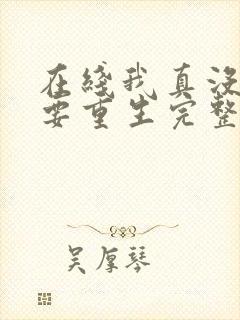 在线我真没
要重生完整
吴厚琴